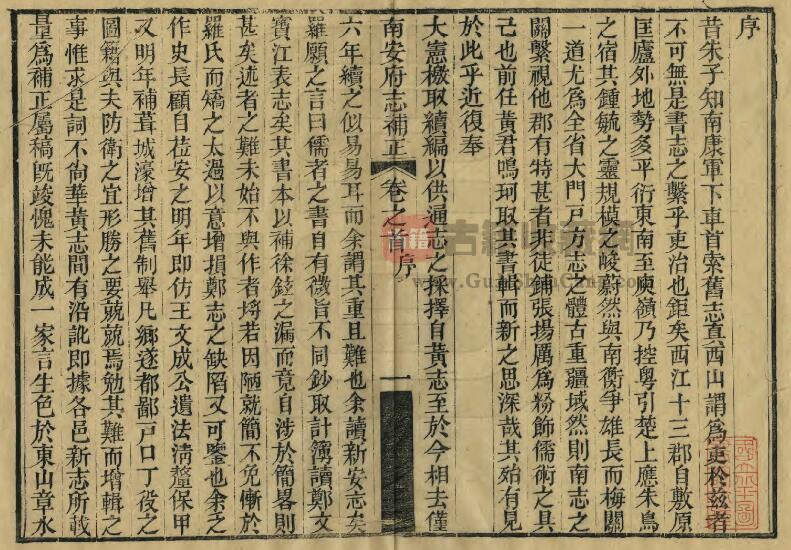 序
昔朱子知南康軍下車首索舊志真西山謂爲吏於茲者
不可無是書志之繫乎吏治也鉅矣西江十三郡自敷原
匡廬外地勢多平衍東南至庾嶺乃控粵引楚上應朱鳥
之宿其鍾毓之靈規模之峻蔚然與南衡爭雄長而梅關
一道尤爲全省大門戸方志之體古重疆域然則南志之
關繫視他郡有特甚者非徒鋪張揚厲爲粉飾儒術之具
己也前任黃君鳴珂取其書輯而新之思深哉其殆有見
於此乎近復奉
大憲檄取續編以供通志之採擇自黃志至於今相去僅
南安府志補正
卷之首序
一
六年續之似易易耳而余謂其重且難也余讀新安志矣
羅願之言曰儒者之書自有微旨不同鈔取計簿讀鄭文
寶江表志矣其書本以補徐鉉之漏而竟自涉於簡畧則
甚矣述者之難未始不與作者埒若因陋就簡不免慚於
羅氏而矯之太過以意增損鄭志之缺陷又可鑒也余之
作史長顧自莅安之明年即仿王文成公遺法清釐保甲
又明年補葺城濠增其舊制舉凡鄉遂都鄙戸口丁役之
圖籍與夫防衛之宜形勝之要兢兢焉勉其難而增輯之
事惟求是詞不尙華黃志間有沿訛即據各邑新志所載
量爲補正屬稿既竣愧未能成一家言生色於東山章水